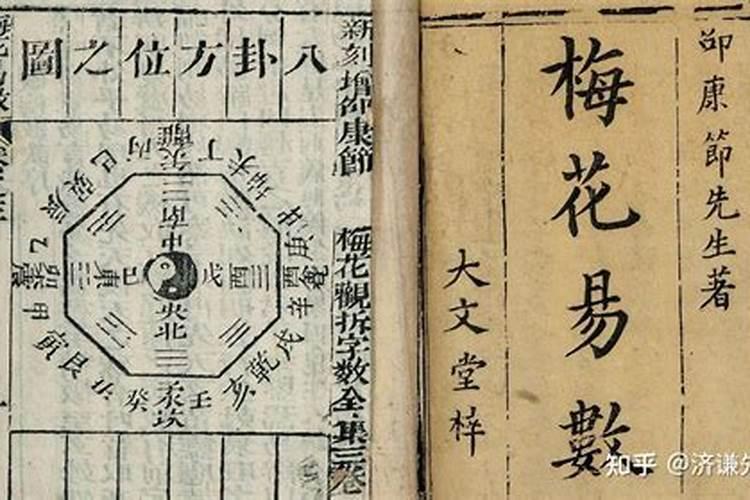 邵康節先生著
梅花易數
大文堂梓
新刻增邵康節 梅花觀拆字數全集三卷
八卦方位之圖
離
丁
未
坤
申
庚
酉
兌
辛
戌
乾
亥
壬
子坎
癸
丑
艮
寅
甲
卯
震
乙
辰
巽
巳
丙
南
中
戊
酉
央
北
巳
東
知乎 @济谦